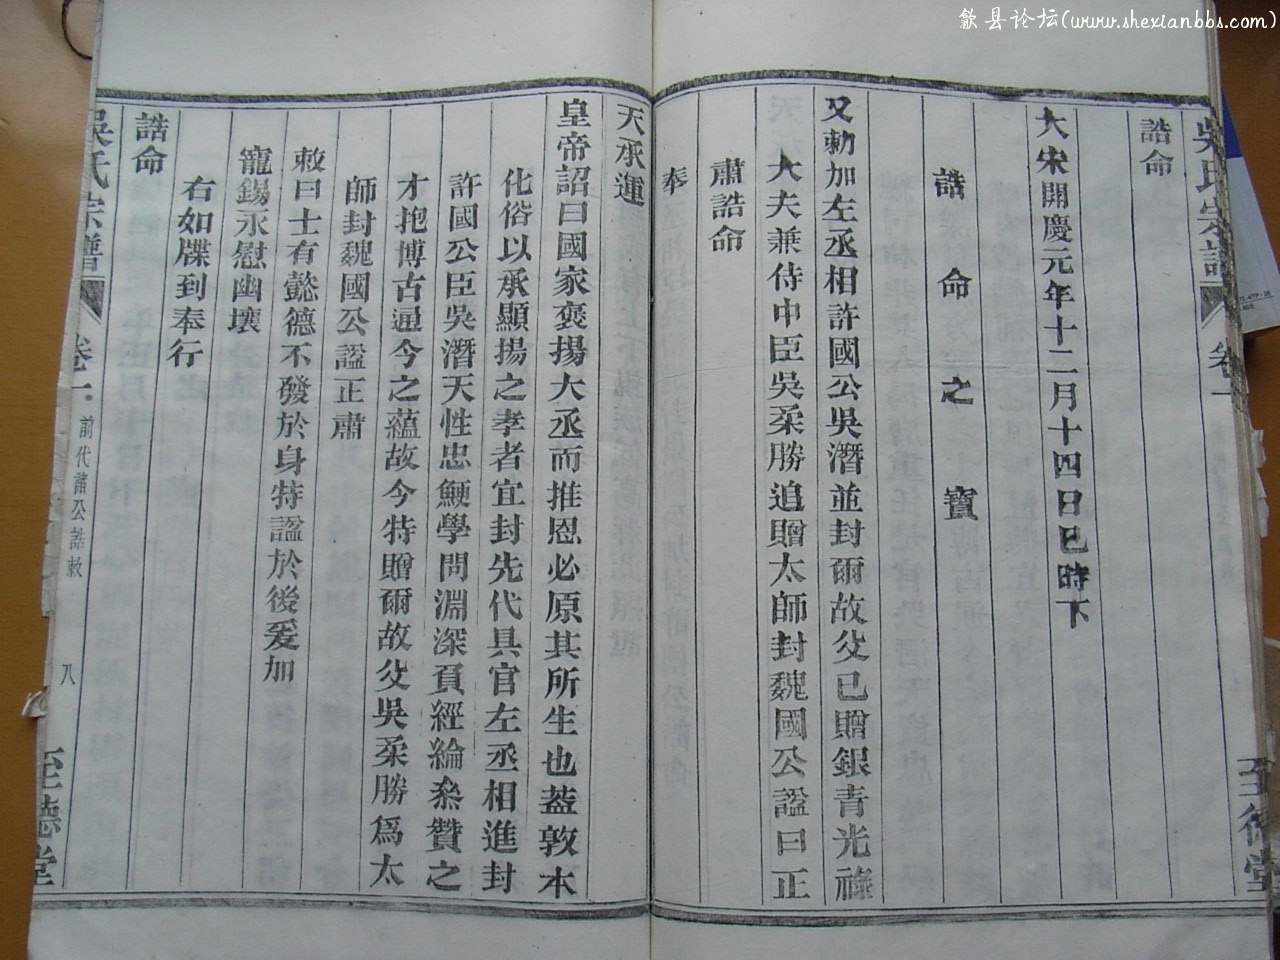 歙县论坛(www.shexianbbs.com)
吳氏宗譜
卷一
至德堂
誥命
大宋開慶元年十二月十四日巳時下
誥命之寶
又勅加左丞相許國公吳潛並封爾故父已贈銀青光祿
大夫兼侍中臣吳柔勝追贈太師封魏國公諡曰正
肅誥命
奉
天承運
皇帝詔曰國家褒揚大丞而推恩必原其所生也蓋敦本
化俗以承顯揚之孝者宜封先代具官左丞相進封
許國公臣吳潛天性忠鯁學問淵深負經綸叅贊之
才抱博古通今之蘊故今特贈爾故父吳柔勝為太
師封魏國公諡正肅
敕曰士有懿德不發於身特諡於後爰加
寵錫永慰幽壤
右如牒到奉行
誥命
吳氏宗譜
卷一
前代諸公誥敕
八
至德堂